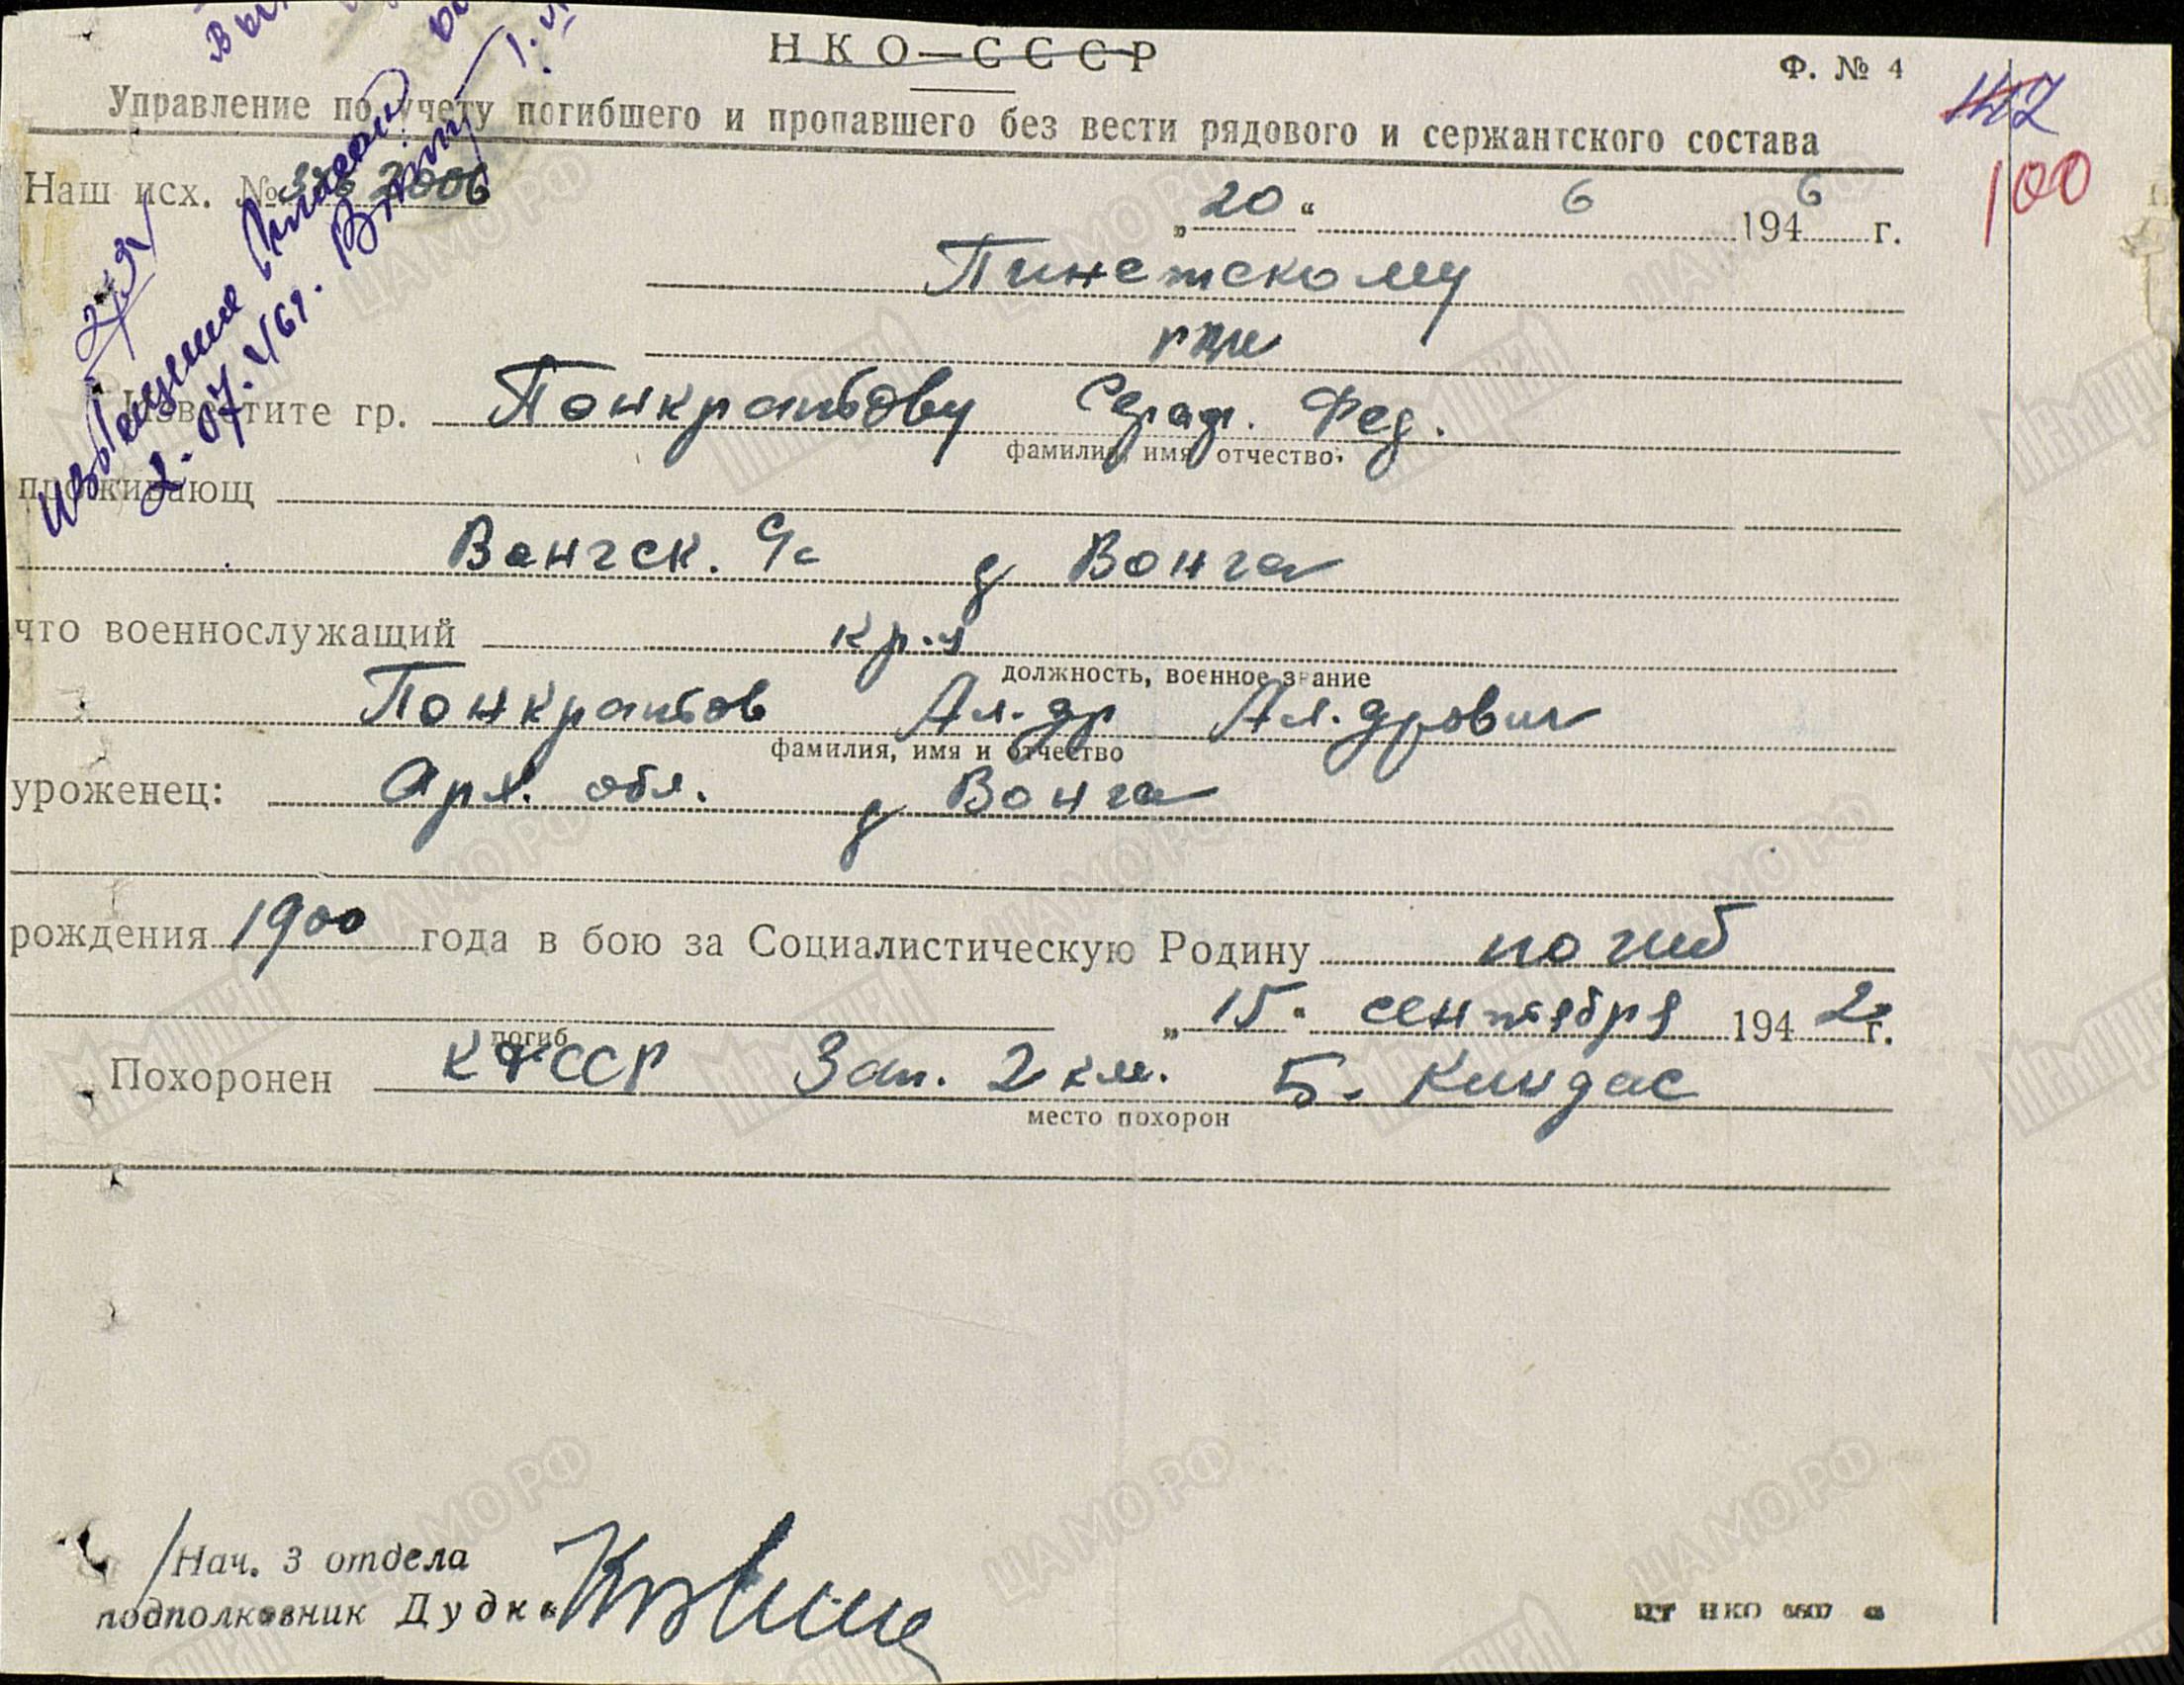 НКО—СССР
Ф. № 4
Управление по учету погибшего и пропавшего без вести рядового и сержантского состава
100
Наш исх. № 2006
„20“ 6 1946 г.
Пинежскому
рви
Известите гр. Понкратову Сераф. Фед.
фамилия, имя, отчество
проживающ
Вонгск. с/с д Вонга
что военнослужащий кр-ц
должность, военное звание
Понкратов Ал-др Ал-дрович
фамилия, имя и отчество
уроженец: Арх. обл. д Вонга
рождения 1900 года в бою за Социалистическую Родину погиб
„15“ сентября 1942 г.
погиб
Похоронен КФССР Зап. 2 км. Б. Киндас
место похорон
/Нач. 3 отдела
подполковник Дудка
ЦТ НКО
извещение